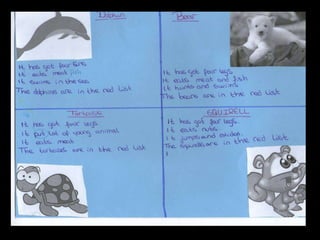 Dolphin
It has got four fins
It eats meat fish
It swims in the sea
The dolphins are in the red list
Bear
It has got four legs
It eats meat and fish
It hunts and swims
The bears are in the red list
Tortoise
It has got four legs.
It put lot of young animal
It eats meat
The tortoises are in the red list
SQUIRELL
It has got four legs.
It eats nuts
It jumps and
The squirells are in the red list